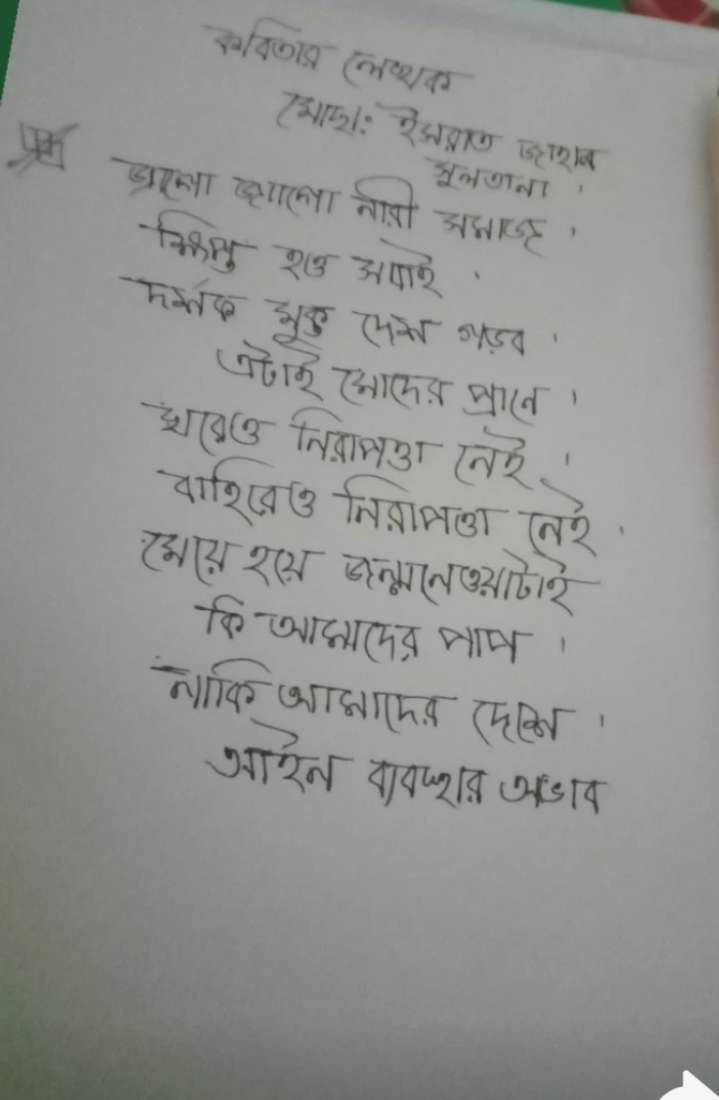 কবিতার লেখক
মোছা: ইসরাত জাহান
সুলতানা ।
জ্বালো জ্বালো নারী সমাজ ।
ক্ষিপ্ত হও সবাই ।
দর্শক মুক্ত দেশ গড়ব ।
এটাই মোদের প্রানে ।
ঘরেও নিরাপত্তা নেই ।
বাহিরেও নিরাপত্তা নেই ।
মেয়ে হয়ে জন্মনেওয়াটাই
কি আমাদের পাপ ।
নাকি আমাদের দেশে ।
আইন ব্যবস্থার অভাব